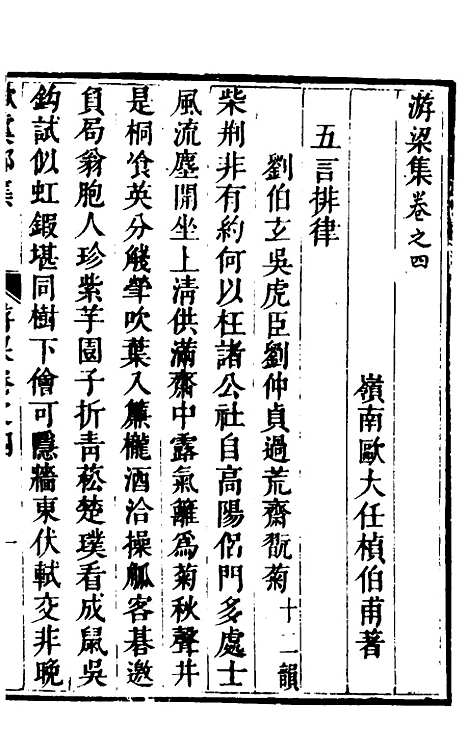 游梁集卷之四
嶺南歐大任楨伯甫著
五言排律
劉伯玄吳虎臣劉仲貞過荒齋翫菊十二韻
柴荆非有約何以枉諸公社自高陽侶門多處士
風流塵開坐上清供滿齋中露氣籬爲菊秋聲井
是桐飡英分餞斝吹葉入簾櫳酒洽操觚客碁邀
負局翁胞人珍紫芋園子折靑菘楚璞看成鼠吳
鈎試似虹鍜堪同樹下儈可隱牆東伏軾交非晩